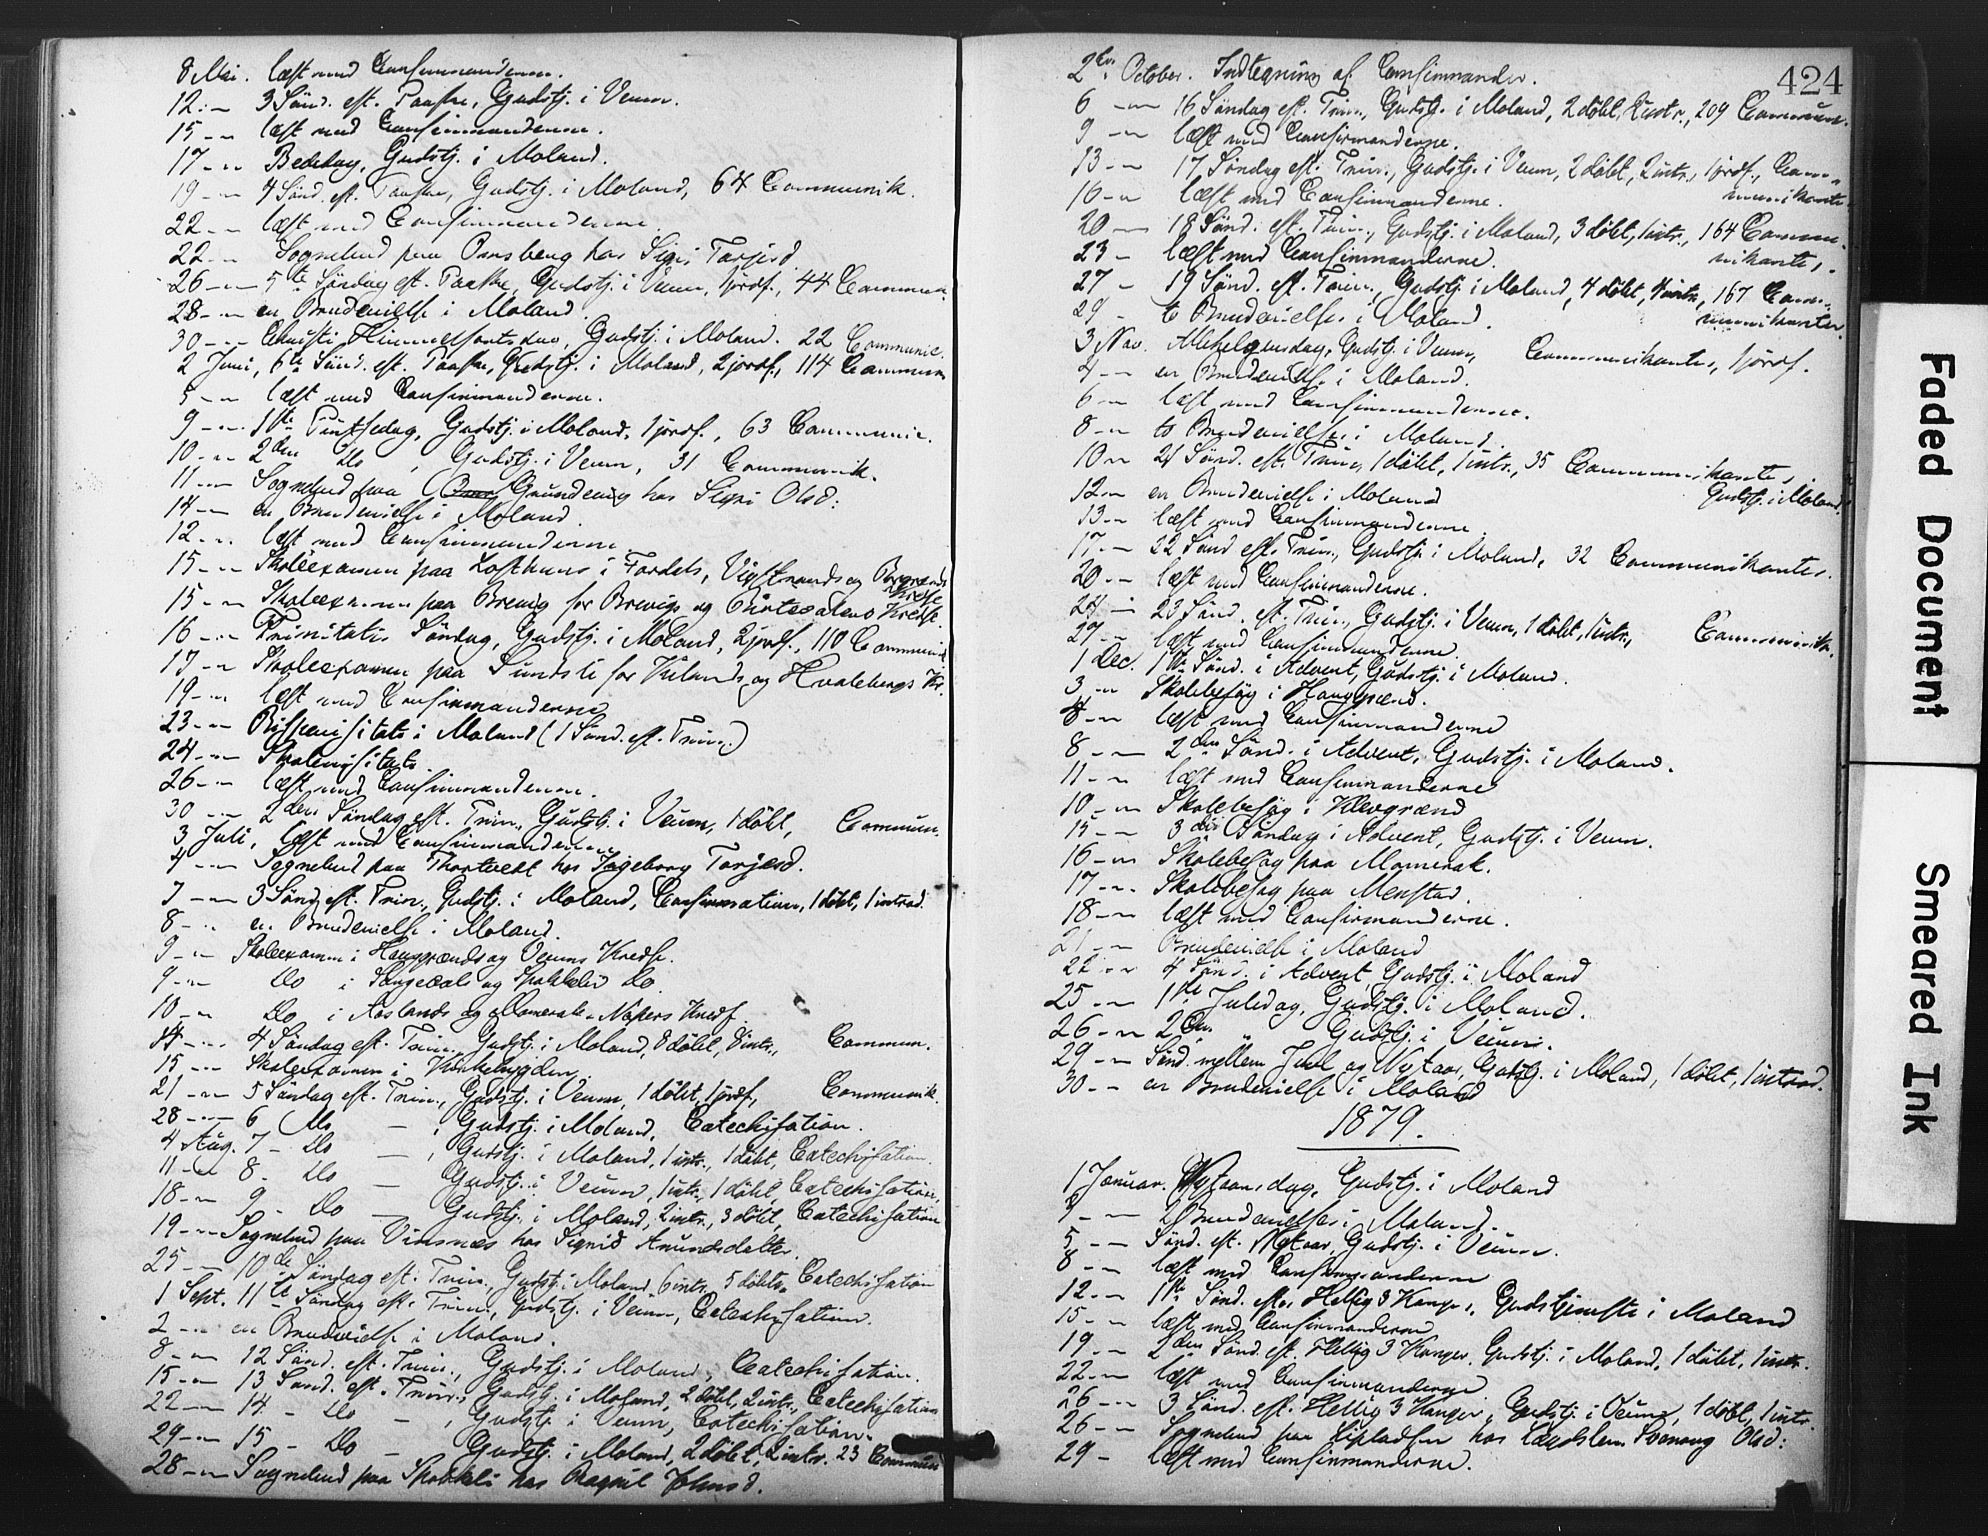 8 Mai. læst med Confirmanderne.
12 -- 3 Sønd. eft. Paaske, Gudstj. i Veum.
15 -- læst med Confirmanderne.
17 -- Bededag, Gudstj. i Moland.
19 -- 4 Sønd. eft. Paaske, Gudstj. i Moland, 64 Communik.
22 -- læst med Confirmanderne
22 -- Sognebud paa hos Sigri Tarjesd
26 -- 5te Søndag eft. Paaske, Gudstj. i Veum, 1 jordf., 44 Commun.
28 -- en Brudevielse i Moland
30 -- Christi Himmelfartsdag, Gudstj. i Moland. 22 Communic.
2 Juni, 6te Sønd. eft. Paaske, Gudstj. i Moland, 2 jordf., 114 Commun
5 -- læst med Confirmanderne.
9 -- 1ste Pintsedag, Gudstj. i Moland, 1 jordf., 63 Communic.
10 -- 2den Do, Gudstj. i Veum, 31 Communik.
11 -- Sognebud paa hos Sigri Olsd:
14 -- en Brudevielse i Moland.
12 -- læst med Confirmanderne
15 -- Skoleexamen paa Lofthuus i Fardals, Vigstrands og
Kredse
15 -- Skoleexamen paa Brevig for Brevigs og Kredse.
16 -- Trinitatis Søndag, Gudstj. i Moland, 2 jordf., 110 Communik
17 -- Skoleexamen paa Sundsli for og Kr.
19 -- læst med Confirmanderne
23 -- Bispevisitats i Moland (1 Sønd. eft. Trin.)
24 -- Skolevisitats.
26 -- læst med Confirmanderne.
30 -- 2den Søndag eft. Trin., Gudstj. i Veum, 1 døbt, Commun.
3 Juli, læst med Confirmanderne
4 -- Sognebud paa hos Ingeborg Tarjesd.
7 -- 3 Sønd. eft. Trin., Gudstj. i Moland, Confirmation, 1 døbt, 1 introd.
8 -- en Brudevielse i Moland.
9 -- Skoleexamen i Hauggrænds og Veums Kredse.
9 -- Do i og Spokkelis Do.
10 -- Do i Aaslands og Momrak- Kredse.
14 -- 4 Søndag eft. Trin., Gudstj. i Moland, 8 døbt, 8 intr., Commun.
15 -- Skoleexamen i Kirkebygden
21 -- 5 Søndag eft. Trin., Gudstj. i Veum, 1 døbt, 1 jordf., Communik.
28 -- 6 Do —, Gudstj. i Moland, Catechisation.
4 Aug. 7 - Do —, Gudstj. i Moland, 1 intr., 1 døbt, Catechisation.
11 -- 8 - Do — Gudstj. i Veum, 1 intr., 1 døbt, Catechisation,
18 -- 9 - Do — Gudstj. i Moland, 2 intr., 3 døbt, Catechisation
19 -- Sognebud paa Vinsnæs hos Signid Amundsdatter.
25 -- 10de Søndag eft. Trin., Gudstj. i Moland, 6 intr., 5 døbte, Catechisation
1 Sept. 11te Søndag eft. Trin., Gudstj. i Veum, Catechisation.
2 -- en Brudevielse i Moland.
8 -- 12 Sønd. eft. Trin., Gudstj. i Moland, Catechisation.
15 -- 13 Sønd. eft. Trin., Gudstj. i Moland, 2 døbt, 2 intr., Catechisation
22 -- 14 - Do —, Gudstj. i Veum, Catechisation.
29 -- 15 - Do — Gudstj. i Moland, 2 døbt, 2 intr. 23 Communi
28 -- Sognebud paa Spokkeli hos
424
2den October. Indtegning af Confirmander.
6 -- 16 Søndag eft. Trin., Gudstj. i Moland, 2 døbt, 2 intr., 209 Commun.
9 -- læst med Confirmanderne.
13 -- 17 Søndag eft. Trin., Gudstj. i Veum, 2 døbt, 2 intr., 1 jordf., Com-
munikanter.
16 -- læst med Confirmanderne.
20 -- 18 Sønd. eft. Trin., Gudstj. i Moland, 3 døbt, 1 intr., 164 Commu-
nikanter.
23 - læst med Confirmanderne.
27 - 19 Sønd. eft. Trin., Gudstj. i Moland, 4 døbt, 4 intr., 167 Com-
munikanter
29 - to Brudevielser i Moland.
3 Nov. Allehelgensdag, Gudstj. i Veum, Communikanter, 1 jordf.
4 -- en Brudevielse i Moland.
6 -- læst med Confirmanderne.
8 -- to Brudevielser i Moland.
10 -- 21 Sønd. eft. Trin., 1 døbt, 1 intr., 35 Communikanter,
Gudstj. i Moland.
12 -- en Brudevielse i Moland
13 -- læst med Confirmanderne
17 -- 22 Sønd eft. Trin., Gudstj. i Moland, 32 Communikanter.
20 -- læst med Confirmanderne.
24 -- 23 Sønd. eft. Trin., Gudstj. i Veum, 1 døbt, 1 intr., Communik.
27 -- læst med Confirmanderne.
1 Dec. 1ste Sønd. i Advent, Gudstj. i Moland.
3 -- Skolebesøg i Hauggrænd.
4 -- læst med Confirmanderne
8 -- 2den Sønd. i Advent, Gudstj. i Moland.
11 -- læst med Confirmanderne
10 -- Skolebesøg i Klevgrænd
15 -- 3die Søndag i Advent, Gudstj. i Veum.
16 -- Skolebesøg paa Momrak.
17 -- Skolebesøg paa Menstad.
18 -- læst med Confirmanderne.
21 -- Brudevielse i Moland
22 -- 4 Sønd. i Advent, Gudstj. i Moland
25 -- 1ste Juledag, Gudstj. i Moland.
26 -- 2den „ Gudstj. i Veum.
29 -- Sønd. mellem Juul og Nytaar, Gudstj. i Moland, 1 døbt, 1 introd.
30 -- en Brudevielse i Moland
1879.
1 Januar. Nytaarsdag, Gudstj. i Moland
-- 2 Brudevielser i Moland.
5 -- Sønd. eft. Nytaar, Gudstj. i Veum.
8 -- læst med Confirmanderne
12 -- 1ste Sønd. efter Hellig 3 Konger, Gudstjeneste i Moland
15 -- læst med Confirmanderne
19 -- 2den Sønd. eft. Hellig 3 Konger, Gudstj. i Moland, 1 døbt, 1 intr.
22 -- læst med Confirmanderne
26 -- 3 Sønd. eft. Hellig 3 Konger, Gudstj. i Veum, 1 døbt, 1 intr.
26 -- Sognebud paa hos Olsd:
29 - læst med Confirmanderne.
Faded Document
Smeared Ink